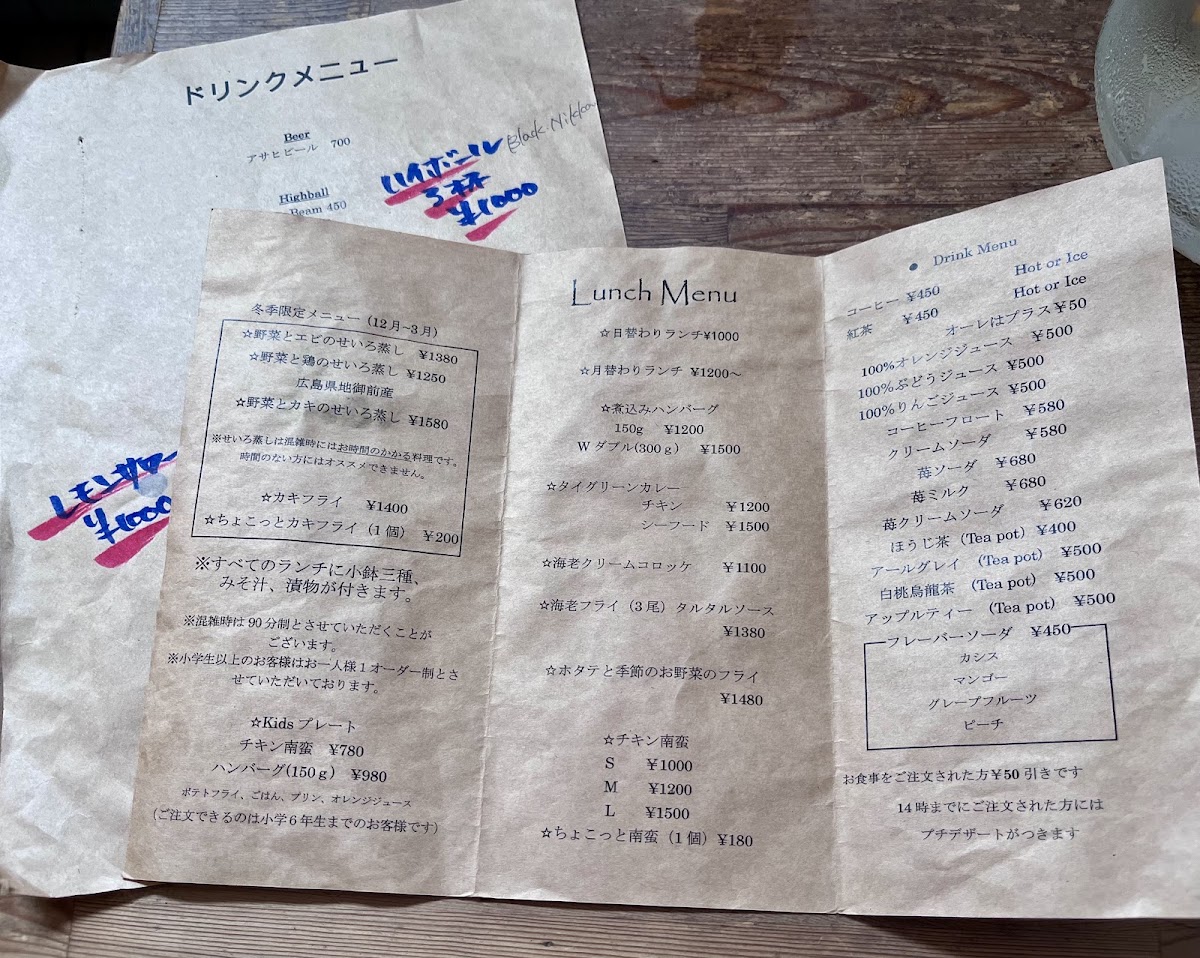 ドリンクメニュー
Beer
アサヒビール 700
Highball
Beam 450
ハイボール
3杯
¥1000
Black Nikka
レモンサワー
¥1000
冬季限定メニュー (12月~3月)
☆野菜とエビのせいろ蒸し ¥1380
☆野菜と鶏のせいろ蒸し ¥1250
広島県地御前産
☆野菜とカキのせいろ蒸し ¥1580
※せいろ蒸しは混雑時にはお時間のかかる料理です。
時間のない方にはオススメできません。
☆カキフライ ¥1400
☆ちょこっとカキフライ (1個) ¥200
※すべてのランチに小鉢三種、
みそ汁、漬物が付きます。
※混雑時は90分制とさせていただくことが
ございます。
※小学生以上のお客様はお一人様1オーダー制とさ
せていただいております。
☆Kids プレート
チキン南蛮 ¥780
ハンバーグ(150g) ¥980
ポテトフライ、ごはん、プリン、オレンジジュース
(ご注文できるのは小学6年生までのお客様です)
Lunch Menu
☆日替わりランチ¥1000
☆月替わりランチ ¥1200～
☆煮込みハンバーグ
150g ¥1200
W ダブル(300g) ¥1500
☆タイグリーンカレー
チキン ¥1200
シーフード ¥1500
☆海老クリームコロッケ ¥1100
☆海老フライ (3尾) タルタルソース
¥1380
☆ホタテと季節のお野菜のフライ
¥1480
☆チキン南蛮
S ¥1000
M ¥1200
L ¥1500
☆ちょこっと南蛮 (1個) ¥180
● Drink Menu
コーヒー ¥450 Hot or Ice
紅茶 ¥450 Hot or Ice
オーレはプラス¥50
100%オレンジジュース ¥500
100%ぶどうジュース ¥500
100%りんごジュース ¥500
コーヒーフロート ¥580
クリームソーダ ¥580
苺ソーダ ¥680
苺ミルク ¥680
苺クリームソーダ ¥620
ほうじ茶 (Tea pot) ¥400
アールグレイ (Tea pot) ¥500
白桃烏龍茶 (Tea pot) ¥500
アップルティー (Tea pot) ¥500
フレーバーソーダ ¥450
カシス
マンゴー
グレープフルーツ
ピーチ
お食事をご注文された方¥50 引きです
14時までにご注文された方には
プチデザートがつきます